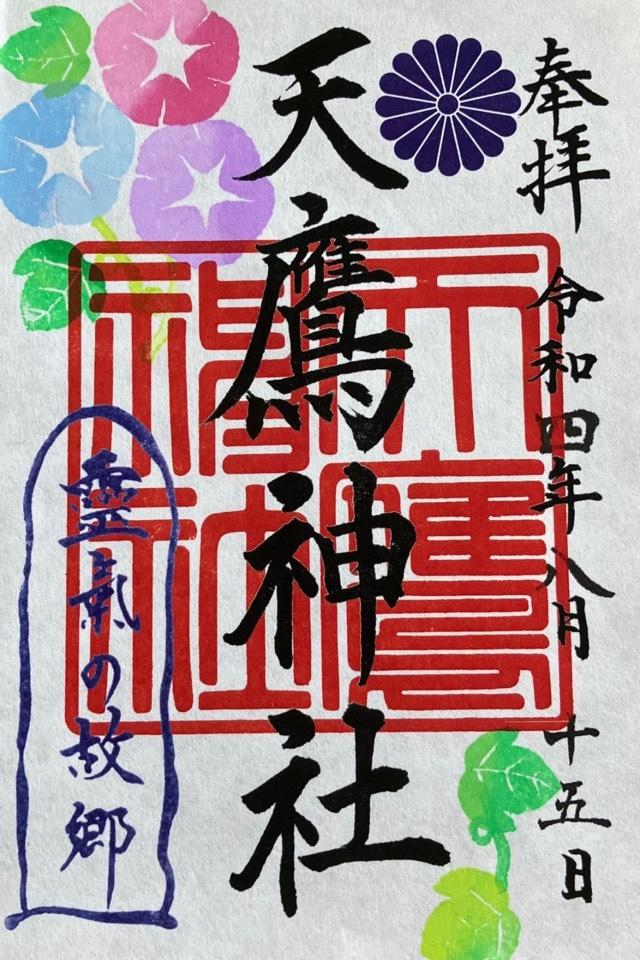 奉拝
令和四年八月十五日
天鷹神社
天鷹神社
靈氣の故郷